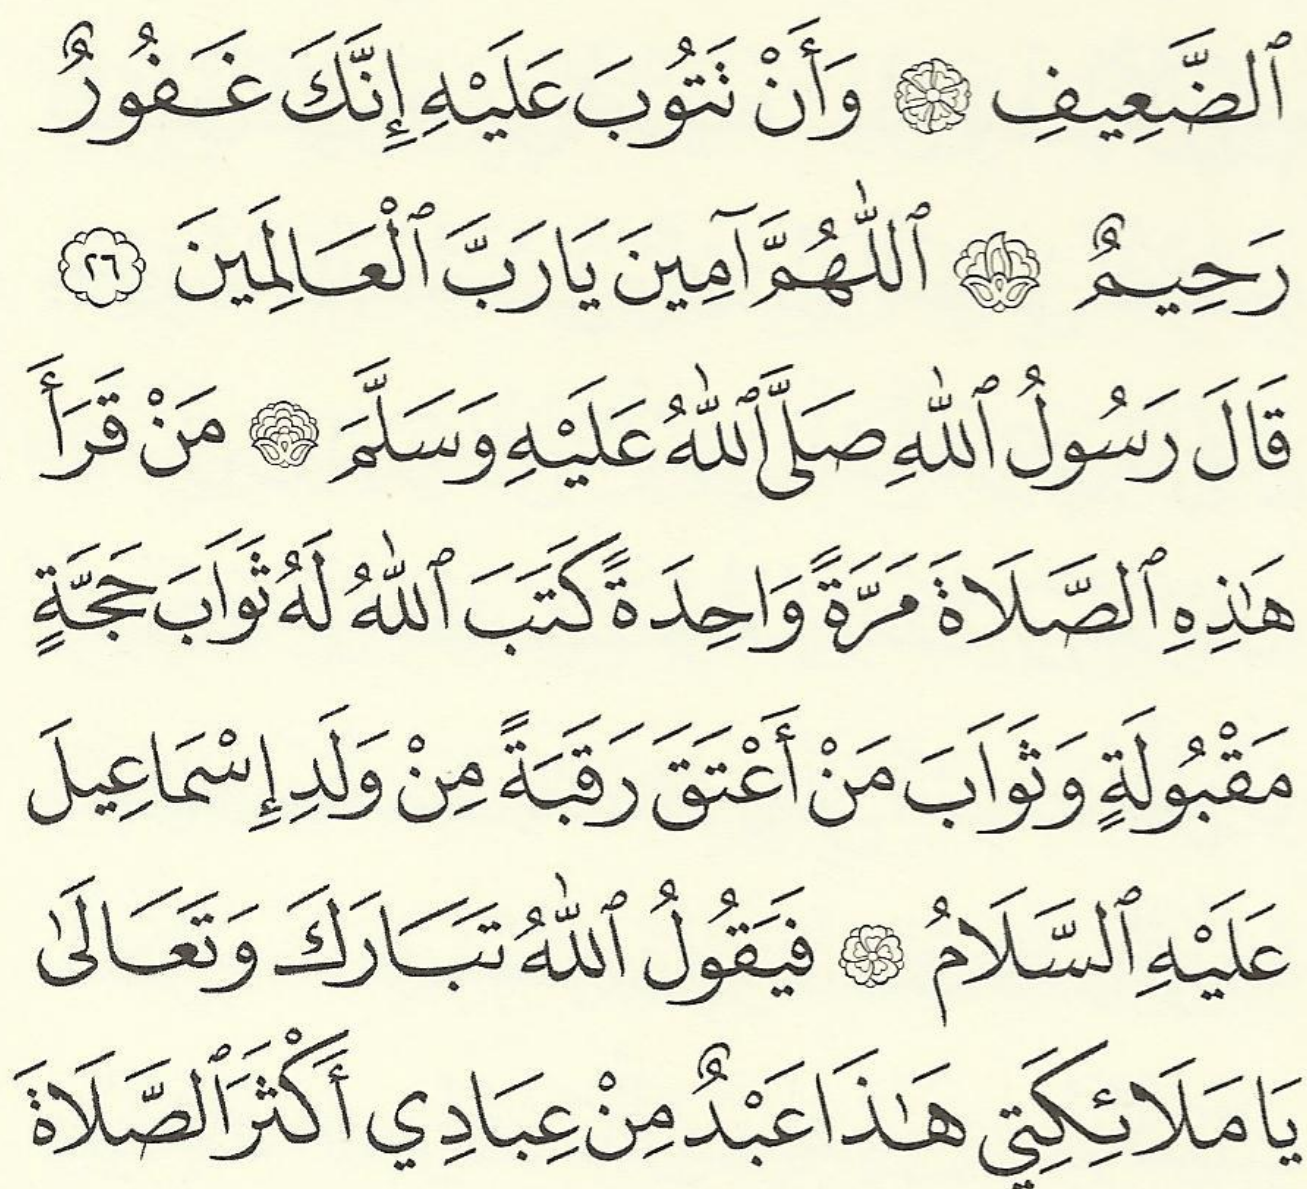 ٱلضَّعِيفِ وَأَنْ نَتُوبَ عَلَيْهِ إِنَّكَ غَفُورٌ
رَحِيمٌ ٱللّٰهُمَّ آمِينَ يَارَبَّ ٱلْعَالَمِينَ ٢٦
قَالَ رَسُولُ ٱللّٰهِ صَلَّى ٱللّٰهُ عَلَيْهِ وَسَلَّمَ مَنْ قَرَأَ
هٰذِهِ ٱلصَّلَاةَ مَرَّةً وَاحِدَةً كَتَبَ ٱللّٰهُ لَهُ ثَوَابَ حَجَّةٍ
مَقْبُولَةٍ وَثَوَابَ مَنْ أَعْتَقَ رَقَبَةً مِنْ وَلَدِ إِسْمَاعِيلَ
عَلَيْهِ ٱلسَّلَامُ فَيَقُولُ ٱللّٰهُ تَبَارَكَ وَتَعَالَىٰ
يَا مَلَائِكَتِي هٰذَا عَبْدٌ مِنْ عِبَادِي أَكْثَرَ ٱلصَّلَاةَ